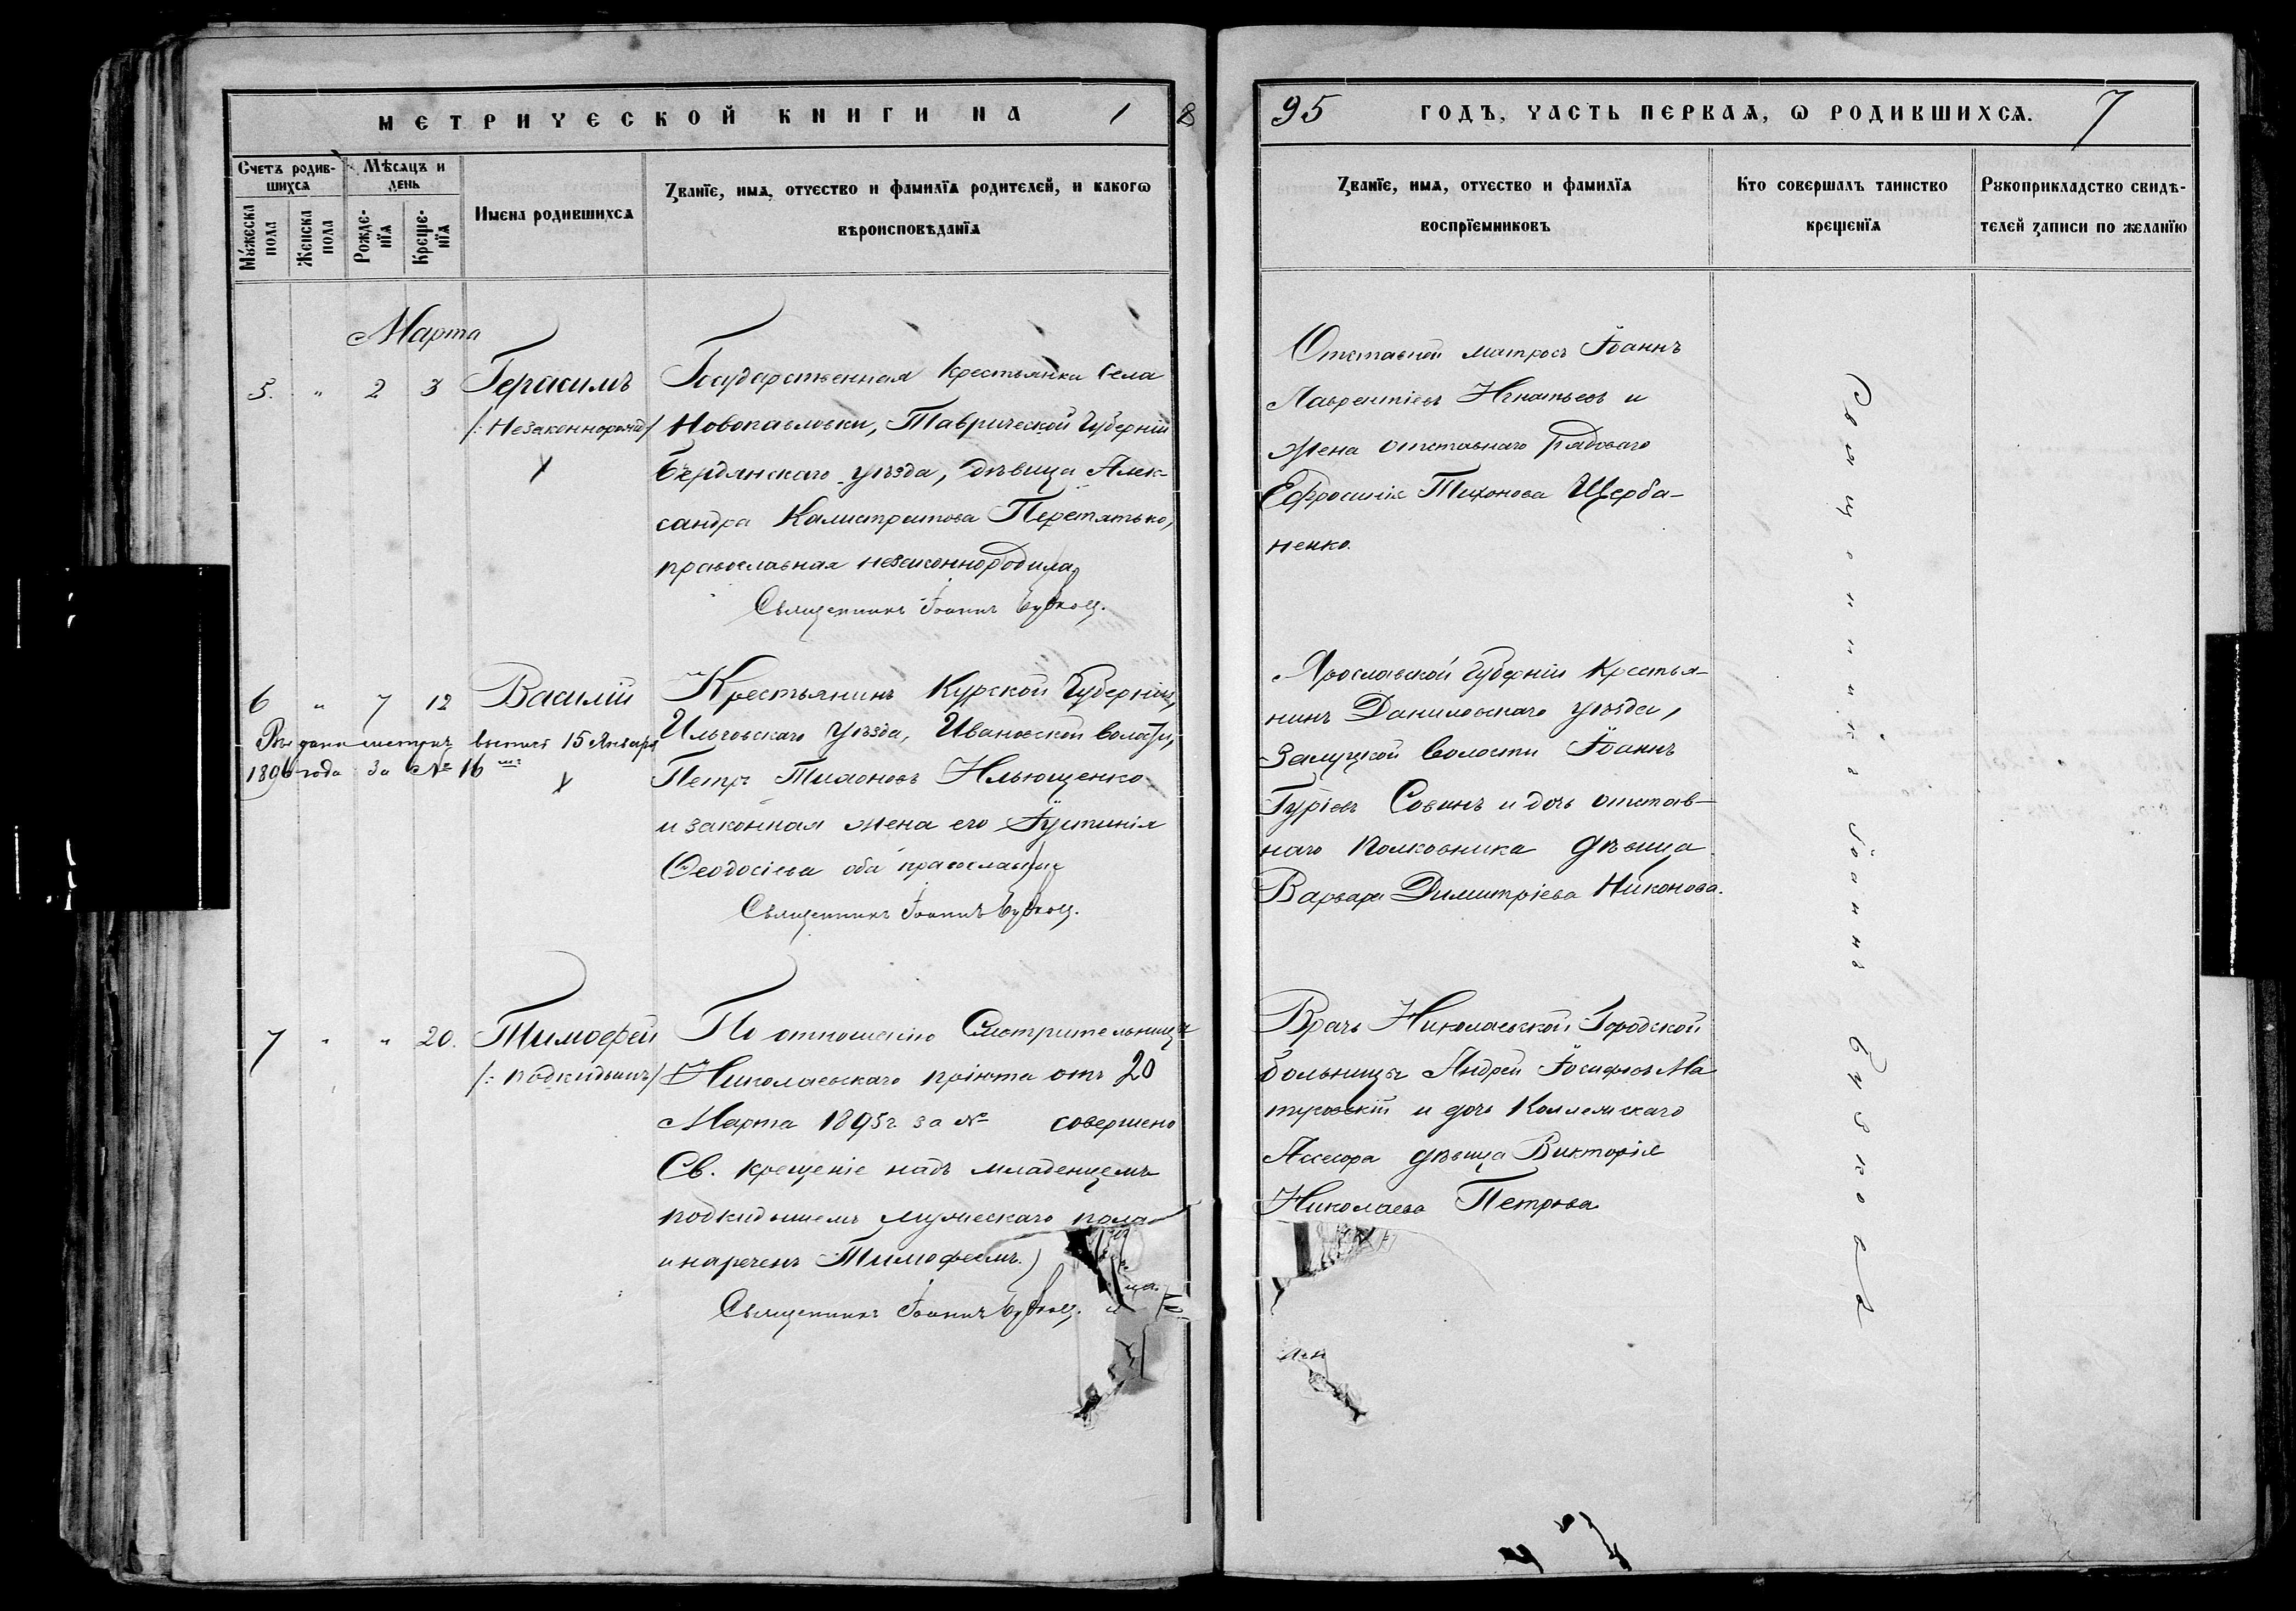 МЕТРИЧЕСКОЙ КНИГИ НА 18
Счетъ родившихся
Мѣсяцъ и день
Мужеска пола
Женска пола
Рожденїя
Крещенїя
Имена родившихся
Званїе, имя, отчество и фамилїя родителей, и какогѡ
вѣроисповѣданїя
Марта
5. " 2 3 Герасимъ
/: Незаконнорожд:/
Государственная крестьянка села
Новопавловки, Таврической Губерніи
Бердянскаго уѣзда, дѣвица Алек-
сандра Калистратова Перетятько,
православная незаконнородила
Священникъ Іоаннъ
6 " 7 12 Василій
Выдана метрич. выпись 15 Января
1896 года за № 16
Крестьянинъ Курской Губерніи,
Льговскаго Уѣзда, Ивановской волости,
Петръ Тихоновъ Ильющенко
и законная жена его Іустинія
Феодосіева оба православные
Священникъ Іоаннъ
7 " " 20. Тимофей
/: подкидышъ/
По отношенію Смотрительницы
Николаевскаго пріюта отъ 20
Марта 1895 г за № совершено
Св. крещеніе надъ младенцемъ
подкидышемъ мужескаго пола
и нареченъ Тимофеемъ.
Священникъ Іоаннъ
95 ГОДЪ, ЧАСТЬ ПЕРВАЯ, Ѡ РОДИВШИХСЯ. 7
Званїе, имя, отчество и фамилїя
воспрїемниковъ
Кто совершалъ таинство
крещенїя
Рукоприкладство свидѣ-
телей записи по желанїю
Отставной матросъ Іоаннъ
Лаврентіевъ Игнатьевъ и
жена отставнаго рядоваго
Ефросинія Тихонова Щерба-
ненко.
Ярославской Губерніи крестья-
нинъ Даниловскаго уѣзда,
Залужской волости Іоаннъ
Гуріевъ Совинъ и дочь отстав-
наго Полковника дѣвица
Варвара Димитріева Никонова.
Врачъ Николаевской Городской
больницы Андрей Іосифовъ Ма
туровскій и дочь Коллежскаго
Ассесора дѣвица Викторія
Николаева Петрова
Священникъ Іоаннъ